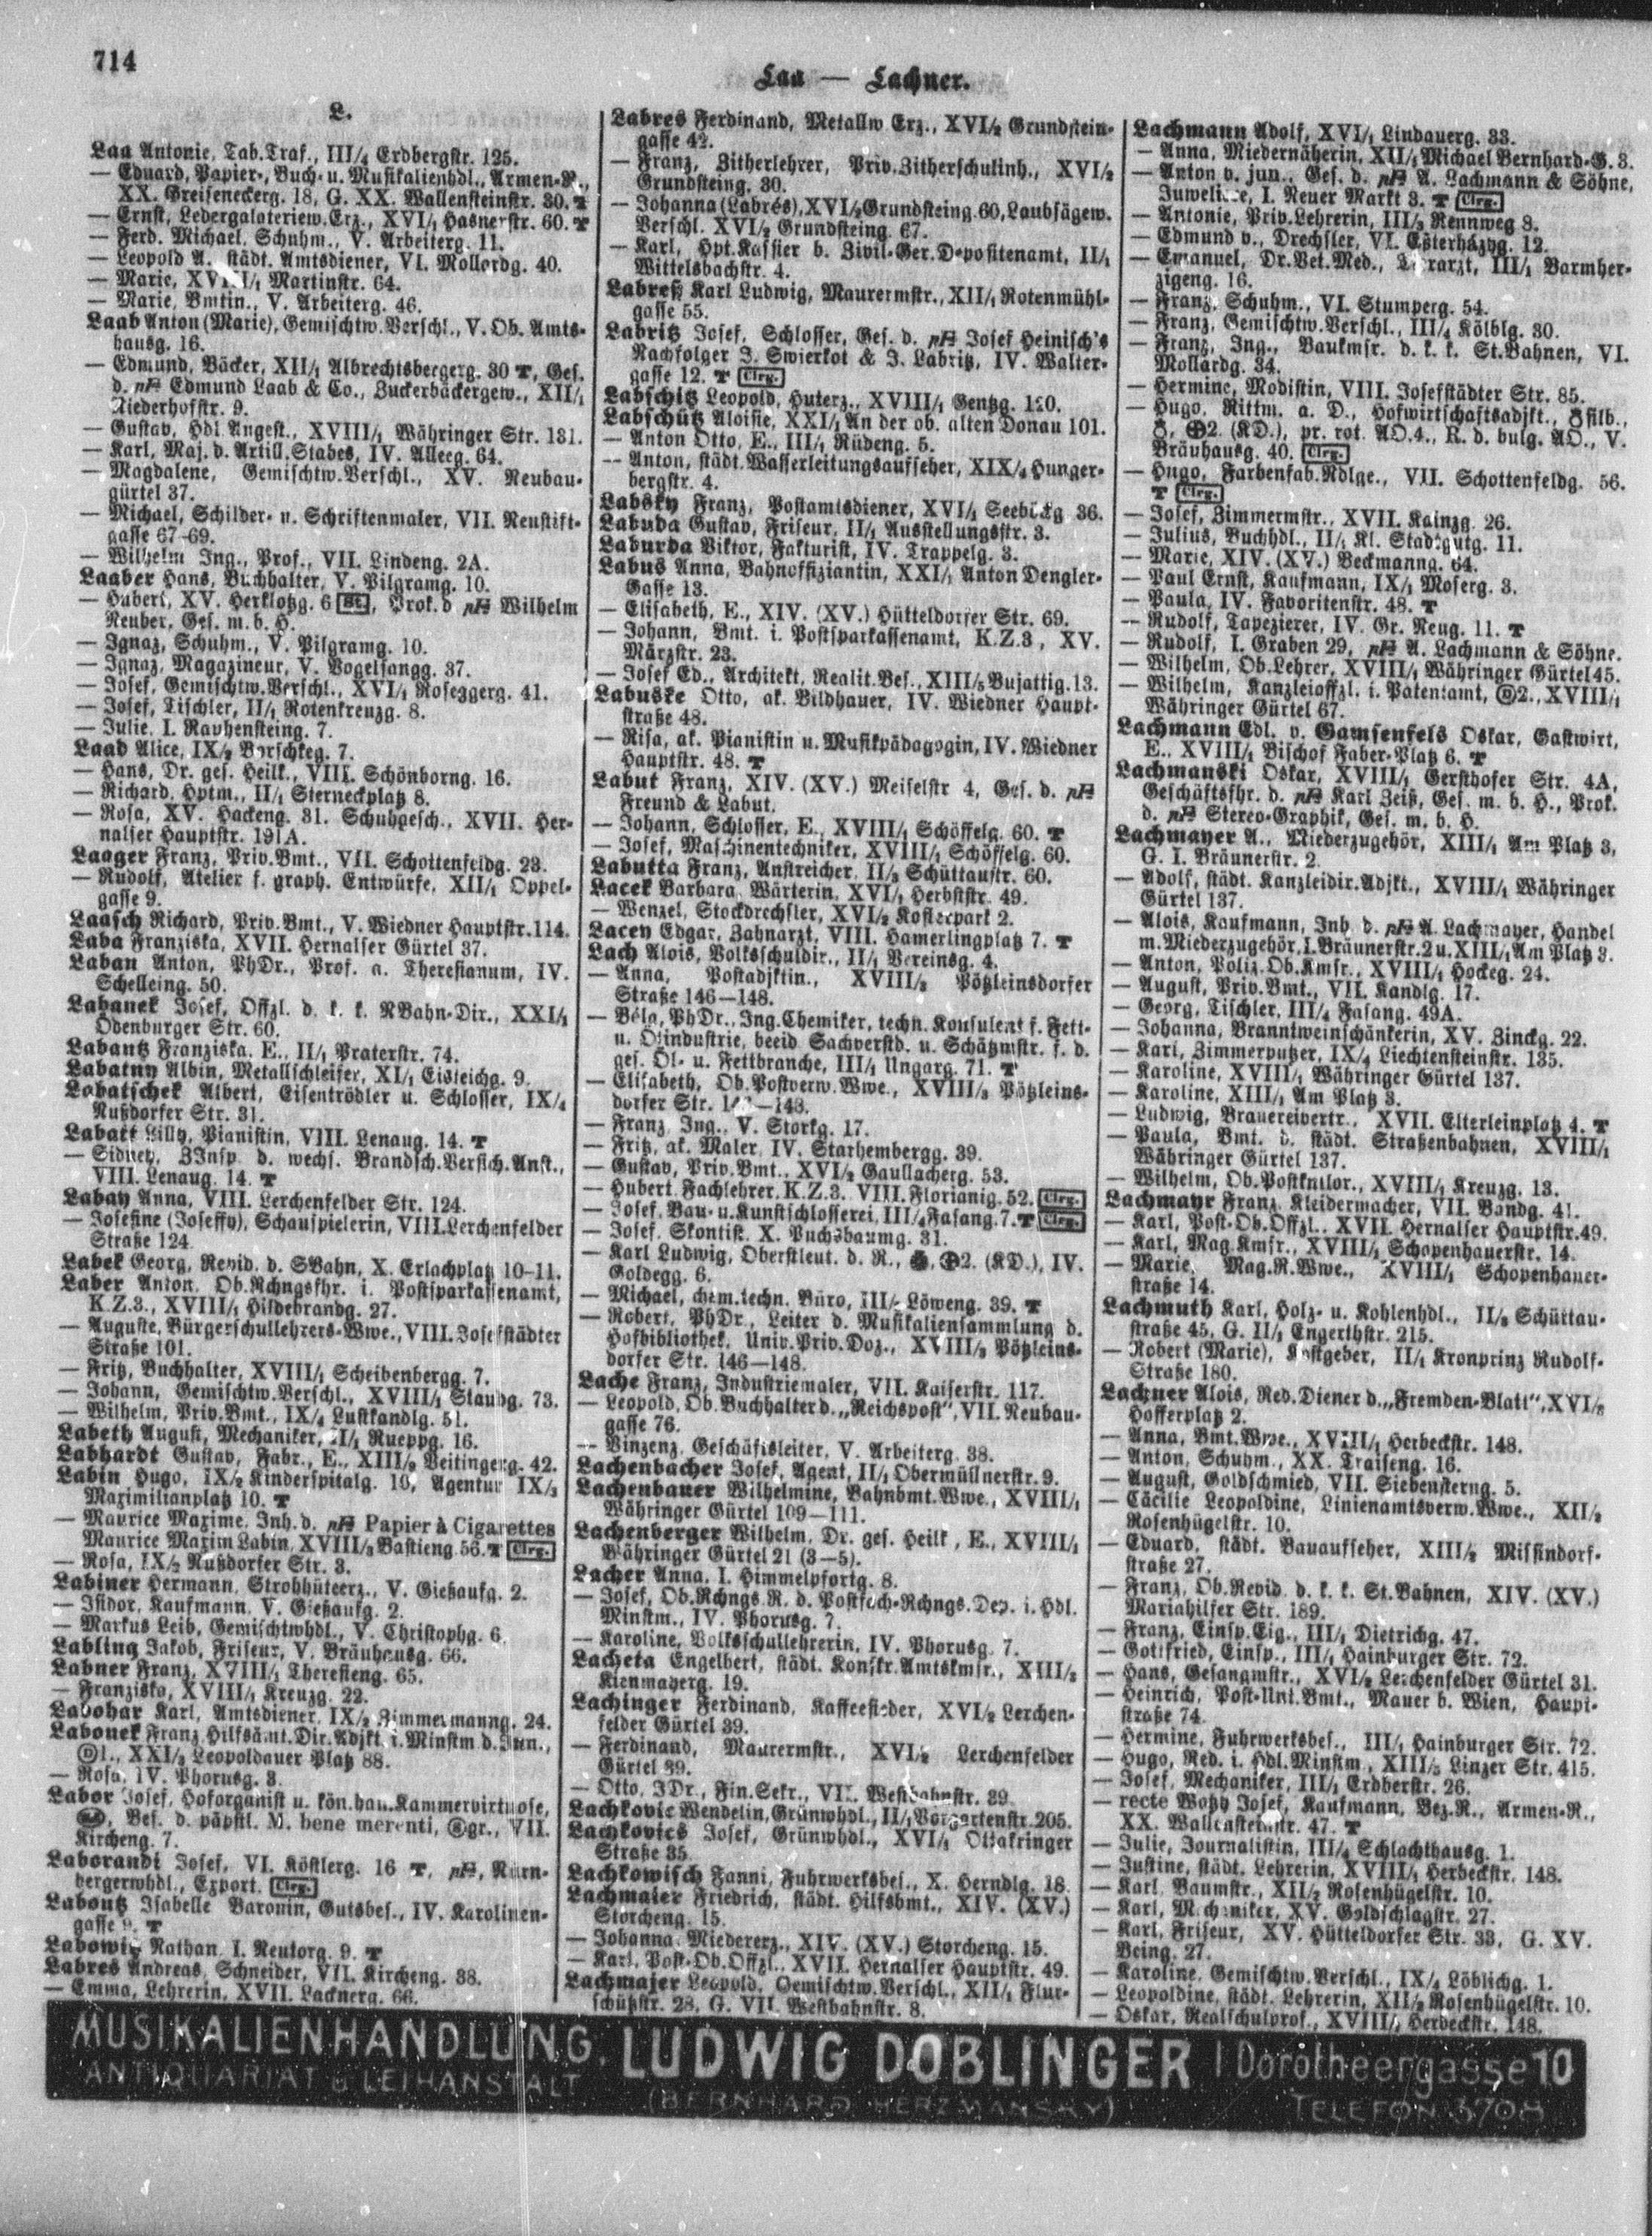 714
Laa — Lachner.
L.
Laa Antonie, Tab.Traf., III/4 Erdbergstr. 125.
— Eduard, Papier-, Buch- u. Musikalienhdl., Armen-R.,
XX. Greiseneckerg. 18, G. XX. Wallensteinstr. 30. T
— Ernst, Ledergalanteriew.Erz., XVI/1 Hasnerstr. 60. T
— Ferd. Michael, Schuhm., V. Arbeiterg. 11.
— Leopold A., städt. Amtsdiener, VI. Mollardg. 40.
— Marie, Martinstr. 64.
— Marie, Bmtin., V. Arbeiterg. 46.
Laab Anton (Marie), Gemischtw.Verschl., V. Ob. Amts-
hausg. 16.
— Edmund, Bäcker, XII/1 Albrechtsbergerg. 30 T, Ges.
d. pH Edmund Laab & Co., Zuckerbäckergew., XII/1
Niederhofstr. 9.
— Gustav, Hdl.Angest., XVIII/1 Währinger Str. 131.
— Karl, Maj. d. Artill.Stabes, IV. Alleeg. 64.
— Magdalene, Gemischtw.Verschl., XV. Neubau-
gürtel 37.
— Michael, Schilder- u. Schriftenmaler, VII. Neustift-
gasse 67-69.
— Wilhelm Ing., Prof., VII. Lindeng. 2A.
Laaber Hans, Buchhalter, V. Pilgramg. 10.
— Hubert, XV. Herklotzg. 6, Prok. d. pH Wilhelm
Neuber, Ges. m. b. H.
— Ignaz, Schuhm., V. Pilgramg. 10.
— Ignaz, Magazineur, V. Vogelsangg. 37.
— Josef, Gemischtw.Verschl., XVI/1 Roseggerg. 41.
— Josef, Tischler, II/1 Rotenkreuzg. 8.
— Julie, I. Rauhensteing. 7.
Laad Alice, IX/2 Borschkeg. 7.
— Hans, Dr. ges. Heilk., VIII. Schönborng. 16.
— Richard, Hptm., II/1 Sterneckplatz 8.
— Rosa, XV. Hackeng. 31. Schuhgesch., XVII. Her-
nalser Hauptstr. 191A.
Laager Franz, Priv.Bmt., VII. Schottenfeldg. 23.
— Rudolf, Atelier f. graph. Entwürfe, XII/1 Oppel-
gasse 9.
Laasch Richard, Priv.Bmt., V. Wiedner Hauptstr. 114.
Laba Franziska, XVII. Hernalser Gürtel 37.
Laban Anton, PhDr., Prof. a. Theresianum, IV.
Schelleing. 50.
Labanek Josef, Offzl. d. k. k. NBahn-Dir., XXI/1
Ödenburger Str. 60.
Labantz Franziska. E., II/1 Praterstr. 74.
Labatny Albin, Metallschleifer, XI/1 Eisteichg. 9.
Labatschek Albert, Eisentrödler u. Schlosser, IX/4
Nußdorfer Str. 31.
Labatt Lilly, Pianistin, VIII. Lenaug. 14. T
— Sidney, ZInsp. d. wechs. Brandsch.Versich.Anst.,
VIII. Lenaug. 14. T
Labay Anna, VIII. Lerchenfelder Str. 124.
— Josefine (Joseffy), Schauspielerin, VIII. Lerchenfelder
Straße 124.
Labek Georg, Revid. d. SBahn, X. Erlachplatz 10-11.
Laber Anton, Ob.Rchngsfhr. i. Postsparkassenamt,
K.Z.3., XVIII/1 Hildebrandg. 27.
— Auguste, Bürgerschullehrers-Wwe., VIII. Josefstädter
Straße 101.
— Fritz, Buchhalter, XVIII/1 Scheibenbergg. 7.
— Johann, Gemischtw.Verschl., XVIII/1 Staudg. 73.
— Wilhelm, Priv.Bmt., IX/4 Lustkandlg. 51.
Labeth August, Mechaniker, Rueppg. 16.
Labhardt Gustav, Fabr., E., XIII/2 Veitingerg. 42.
Labin Hugo, IX/2 Kinderspitalg. 10, Agentur IX/3
Maximilianplatz 10. T
— Maurice Maxime, Inh. d. pH Papier à Cigarettes
Maurice Maxim Labin, XVIII/3 Bastieng. 56. T Clrg.
— Rosa, IX/2 Nußdorfer Str. 3.
Labiner Hermann, Strohhüteerz., V. Gießaufg. 2.
— Isidor, Kaufmann, V. Gießaufg. 2.
— Markus Leib, Gemischtwhdl., V. Christophg. 6.
Labling Jakob, Friseur, V. Bräuhausg. 66.
Labner Franz, XVIII/1 Theresieng. 65.
— Franziska, XVIII/1 Kreuzg. 22.
Labohar Karl, Amtsdiener, IX/2 Zimmermanng. 24.
Labonek Franz, Hilfsämt.Dir.Adjkt. i. Minstm. d. Inn.,
XXI/2 Leopoldauer Platz 88.
— Rosa, IV. Phorusg. 8.
Labor Josef, Hoforganist u. kön. han. Kammervirtuose,
Bes. d. päpstl. M. bene merenti, VII.
Kircheng. 7.
Laborandi Josef, VI. Köstlerg. 16 T, pH, Nürn-
bergerwhdl., Export. Clrg.
Laboutz Isabelle Baronin, Gutsbes., IV. Karolinen-
gasse T
Labowitz Nathan, I. Neutorg. 9. T
Labres Andreas, Schneider, VII. Kircheng. 38.
— Emma, Lehrerin, XVII. Lacknerg. 66.
Labres Ferdinand, Metallw.Erz., XVI/2 Grundstein-
gasse 42.
— Franz, Zitherlehrer, Priv.Zitherschulinh., XVI/2
Grundsteing. 30.
— Johanna (Labrés), XVI/2 Grundsteing. 60, Laubsägew.
Verschl. XVI/2 Grundsteing. 67.
— Karl, Hpt.Kassier b. Zivil-Ger.Depositenamt, II/1
Wittelsbachstr. 4.
Labreß Karl Ludwig, Maurermstr., XII/1 Rotenmühl-
gasse 55.
Labritz Josef, Schlosser, Ges. d. pH Josef Heinisch's
Nachfolger J. Swierkot & J. Labritz, IV. Walter-
gasse 12. T Clrg.
Labschitz Leopold, Huterz., XVIII/1 Gentzg. 120.
Labschütz Aloisie, XXI/1 An der ob. alten Donau 101.
— Anton Otto, E., III/1 Rüdeng. 5.
— Anton, städt. Wasserleitungsaufseher, XIX/4 Hunger-
bergstr. 4.
Labsky Franz, Postamtsdiener, XVI/1 Seeböckg. 36.
Labuda Gustav, Friseur, II/1 Ausstellungsstr. 3.
Laburda Viktor, Fakturist, IV. Trappelg. 3.
Labus Anna, Bahnoffiziantin, XXI/1 Anton Dengler-
Gasse 13.
— Elisabeth, E., XIV. (XV.) Hütteldorfer Str. 69.
— Johann, Bmt. i. Postsparkassenamt, K.Z.3, XV.
Märzstr. 23.
— Josef Ed., Architekt, Realit.Bes., XIII/5 Bujattig. 13.
Labuske Otto, ak. Bildhauer, IV. Wiedner Haupt-
straße 48.
— Risa, ak. Pianistin u. Musikpädagogin, IV. Wiedner
Hauptstr. 48. T
Labut Franz, XIV. (XV.) Meiselstr. 4, Ges. d. pH
Freund & Labut.
— Johann, Schlosser, E., XVIII/1 Schöffelg. 60. T
— Josef, Maschinentechniker, XVIII/1 Schöffelg. 60.
Labutta Franz, Anstreicher, II/3 Schüttaustr. 60.
Lacek Barbara, Wärterin, XVI/1 Herbststr. 49.
— Wenzel, Stockdrechsler, XVI/2 Kofler­park 2.
Lacey Edgar, Zahnarzt, VIII. Hamerlingplatz 7. T
Lach Alois, Volksschuldir., II/1 Vereinsg. 4.
— Anna, Postadjktin., XVIII/3 Pötzleinsdorfer
Straße 146—148.
— Béla, PhDr., Ing.Chemiker, techn. Konsulent f. Fett-
u. Ölindustrie, beeid. Sachverstd. u. Schätzmstr. f. d.
ges. Öl- u. Fettbranche, III/1 Ungarg. 71. T
— Elisabeth, Ob.Postverw.Wwe., XVIII/3 Pötzleins-
dorfer Str. 146—148.
— Franz Ing., V. Storkg. 17.
— Fritz, ak. Maler, IV. Starhembergg. 39.
— Gustav, Priv.Bmt., XVI/2 Gaullacherg. 53.
— Hubert, Fachlehrer, K.Z.3. VIII. Florianig. 52. Clrg.
— Josef, Bau- u. Kunstschlosserei, III/4 Fasang. 7. T Clrg.
— Josef, Skontist. X. Puchsbaumg. 31.
— Karl Ludwig, Oberstleut. d. R., 2. (KD.), IV.
Goldegg. 6.
— Michael, chem.techn. Büro, Löweng. 39. T
— Robert, PhDr., Leiter d. Musikaliensammlung d.
Hofbibliothek, Univ.Priv.Doz., XVIII/3 Pötzleins-
dorfer Str. 146—148.
Lache Franz, Industriemaler, VII. Kaiserstr. 117.
— Leopold, Ob.Buchhalter d. „Reichspost“, VII. Neubau-
gasse 76.
— Vinzenz, Geschäftsleiter, V. Arbeiterg. 38.
Lachenbacher Josef, Agent, II/1 Obermüllnerstr. 9.
Lachenbauer Wilhelmine, Bahnbmt.Wwe., XVIII/1
Währinger Gürtel 109—111.
Lachenberger Wilhelm, Dr. ges. Heilk., E., XVIII/1
Währinger Gürtel 21 (3—5).
Lacher Anna, I. Himmelpfortg. 8.
— Josef, Ob.Rchngs.R. d. Postfach-Rchngs.Dep. i. Hdl.
Minstm., IV. Phorusg. 7.
— Karoline, Volksschullehrerin, IV. Phorusg. 7.
Lacheta Engelbert, städt. Konskr.Amtskmsr., XIII/3
Kienmayerg. 19.
Lachinger Ferdinand, Kaffeesieder, XVI/2 Lerchen-
felder Gürtel 39.
— Ferdinand, Maurermstr., XVI/2 Lerchenfelder
Gürtel 39.
— Otto, JDr., Fin.Sekr., VII. Westbahnstr. 39.
Lachkovic Wendelin, Grünwhdl., II/1 Vorgartenstr. 205.
Lachkovics Josef, Grünwhdl., XVI/1 Ottakringer
Straße 35.
Lachkowisch Fanni, Fuhrwerksbes., X. Herndlg. 18.
Lachmaier Friedrich, städt. Hilfsbmt., XIV. (XV.)
Storcheng. 15.
— Johanna, Miedererz., XIV. (XV.) Storcheng. 15.
— Karl, Post-Ob.Offzl., XVII. Hernalser Hauptstr. 49.
Lachmajer Leopold, Gemischtw.Verschl., XII/1 Flur-
schützstr. 28, G. VII. Westbahnstr. 8.
Lachmann Adolf, XVI/1 Lindauerg. 33.
— Anna, Miedernäherin, XII/1 Michael Bernhard-G. 3.
— Anton v. jun., Ges. d. pH A. Lachmann & Söhne,
Juweliere, I. Neuer Markt 3. T Clrg.
— Antonie, Priv.Lehrerin, III/3 Rennweg 8.
— Edmund v., Drechsler, VI. Eßterházyg. 12.
— Emanuel, Dr.Vet.Med., Tierarzt, III/1 Barmher-
zigeng. 16.
— Franz, Schuhm., VI. Stumperg. 54.
— Franz, Gemischtw.Verschl., III/4 Kölblg. 30.
— Franz, Ing., Baukmsr. d. k. k. St.Bahnen, VI.
Mollardg. 34.
— Hermine, Modistin, VIII. Josefstädter Str. 85.
— Hugo, Rittm. a. D., Hofwirtschaftsadjkt.,
2. (KD.), pr. rot. AO.4., R. d. bulg. AO., V.
Bräuhausg. 40. Clrg.
— Hugo, Farbenfab.Ndlge., VII. Schottenfeldg. 56.
T Clrg.
— Josef, Zimmermstr., XVII. Kainzg. 26.
— Julius, Buchhdl., II/1 Kl. Stadtgutg. 11.
— Marie, XIV. (XV.) Beckmanng. 64.
— Paul Ernst, Kaufmann, IX/1 Moserg. 3.
— Paula, IV. Favoritenstr. 48. T
— Rudolf, Tapezierer, IV. Gr. Neug. 11. T
— Rudolf, I. Graben 29, pH A. Lachmann & Söhne.
— Wilhelm, Ob.Lehrer, XVIII/1 Währinger Gürtel 45.
— Wilhelm, Kanzleioffzl. i. Patentamt, 2., XVIII/1
Währinger Gürtel 67.
Lachmann Edl. v. Gamsenfels Oskar, Gastwirt,
E., XVIII/1 Bischof Faber-Platz 6. T
Lachmanski Oskar, XVIII/1 Gersthofer Str. 4A,
Geschäftsfhr. d. pH Karl Zeiß, Ges. m. b. H., Prok.
d. pH Stereo-Graphik, Ges. m. b. H.
Lachmayer A., Miederzugehör, XIII/1 Am Platz 3,
G. I. Bräunerstr. 2.
— Adolf, städt. Kanzleidir.Adjkt., XVIII/1 Währinger
Gürtel 137.
— Alois, Kaufmann, Inh. d. pH A. Lachmayer, Handel
m. Miederzugehör, I. Bräunerstr. 2 u. XIII/1 Am Platz 3.
— Anton, Poliz.Ob.Kmsr., XVIII/1 Hockeg. 24.
— August, Priv.Bmt., VII. Kandlg. 17.
— Georg, Tischler, III/4 Fasang. 49A.
— Johanna, Branntweinschänkerin, XV. Zinckg. 22.
— Karl, Zimmerputzer, IX/4 Liechtensteinstr. 135.
— Karoline, XVIII/1 Währinger Gürtel 137.
— Karoline, XIII/1 Am Platz 3.
— Ludwig, Brauereivertr., XVII. Elterleinplatz 4. T
— Paula, Bmt. d. städt. Straßenbahnen, XVIII/1
Währinger Gürtel 137.
— Wilhelm, Ob.Postkntlor., XVIII/1 Kreuzg. 13.
Lachmayr Franz, Kleidermacher, VII. Bandg. 41.
— Karl, Post-Ob.Offzl., XVII. Hernalser Hauptstr. 49.
— Karl, Mag.Kmsr., XVIII/1 Schopenhauerstr. 14.
— Marie, Mag.R.Wwe., XVIII/1 Schopenhauer-
straße 14.
Lachmuth Karl, Holz- u. Kohlenhdl., II/3 Schüttau-
straße 45, G. II/1 Engerthstr. 215.
— Robert (Marie), Kostgeber, II/1 Kronprinz Rudolf-
Straße 180.
Lachner Alois, Red.Diener d. „Fremden-Blatt“, XVI/2
Hofferplatz 2.
— Anna, Bmt.Wwe., XVIII/1 Herbeckstr. 148.
— Anton, Schuhm., XX. Traiseng. 16.
— August, Goldschmied, VII. Siebensterng. 5.
— Cäcilie Leopoldine, Linienamtsverw.Wwe., XII/2
Rosenhügelstr. 10.
— Eduard, städt. Bauaufseher, XIII/2 Missindorf-
straße 27.
— Franz, Ob.Revid. d. k. k. St.Bahnen, XIV. (XV.)
Mariahilfer Str. 189.
— Franz, Einsp.Eig., III/1 Dietrichg. 47.
— Gottfried, Einsp., III/1 Hainburger Str. 72.
— Hans, Gesangmstr., XVI/2 Lerchenfelder Gürtel 31.
— Heinrich, Post-Unt.Bmt., Mauer b. Wien, Haupt-
straße 74.
— Hermine, Fuhrwerksbes., III/1 Hainburger Str. 72.
— Hugo, Red. i. Hdl.Minstm., XIII/5 Linzer Str. 415.
— Josef, Mechaniker, III/1 Erdberstr. 26.
— recte Wotzy Josef, Kaufmann, Bez.R., Armen-R.,
XX. Wallensteinstr. 47. T
— Julie, Journalistin, III/4 Schlachthausg. 1.
— Justine, städt. Lehrerin, XVIII/1 Herbeckstr. 148.
— Karl, Baumstr., XII/2 Rosenhügelstr. 10.
— Karl, Mechaniker, XV. Goldschlagstr. 27.
— Karl, Friseur, XV. Hütteldorfer Str. 33, G. XV.
Being. 27.
— Karoline, Gemischtw.Verschl., IX/4 Löblichg. 1.
— Leopoldine, städt. Lehrerin, XII/2 Rosenhügelstr. 10.
— Oskar, Realschulprof., XVIII/1 Herbeckstr. 148.
MUSIKALIENHANDLUNG. LUDWIG DOBLINGER I Dorotheergasse 10
ANTIQUARIAT u LEIHANSTALT (BERNHARD HERZMANSKY) TELEFON 3708